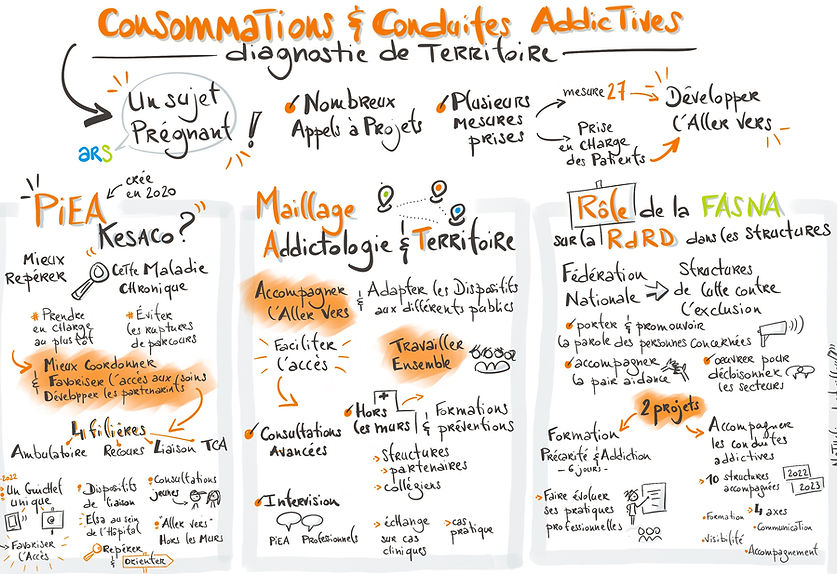 Consommations & Conduites Addictives
diagnostic de Territoire
ARS
Un sujet
Prégnant !
Nombreux
Appels à Projets
Plusieurs
mesures
prises
mesure 27
Prise
en charge
des Patients
Développer
l'Aller vers
PiEA
créée
en 2020
Kesaco ?
Mieux
Repérer
Cette Maladie
chronique
# Prendre
en charge
au plus tôt
# Éviter
les ruptures
de parcours
Mieux Coordonner
& Favoriser l'accès aux soins
Développer les partenariats
4 filières
Ambulatoire Recours Liaison TCA
2022
Un Guichet
unique
Favoriser
l'Accès
Dispositifs
de liaison
Elsa au sein
de l'Hôpital
Repérer
& orienter
Consultations
jeunes
"Aller vers"
Hors les Murs
Maillage
Addictologie & Territoire
Accompagner
l'Aller vers
& Adapter les Dispositifs
aux différents publics
Faciliter
l'accès
Travailler
Ensemble
Consultations
Avancées
Hors
les murs
> Structures
> partenaires
> collégiens
& Formations
préventions
Intervision
PiEA Professionnels
> échange
sur cas
cliniques
> cas
pratique
Rôle de la FASNA
sur la RdRD dans les structures
Fédération
Nationale
Structures
de lutte contre
l'exclusion
porter & promouvoir
la parole des personnes concernées
accompagner
la pair aidance
oeuvrer pour
décloisonner
les secteurs
2 projets
Formation
Précarité & Addiction
- 6 jours -
> Faire évoluer
ses pratiques
professionnelles
Accompagner
les conduites
addictives
> 10 structures
accompagnées
2022
2023
> 4 axes
• Formation
• Communication
• Visibilité
• Accompagnement